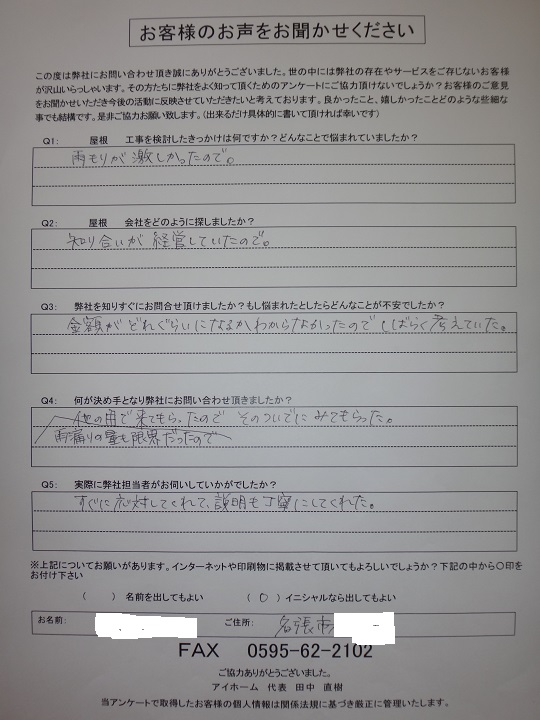 お客様のお声をお聞かせください
この度は弊社にお問い合わせ頂き誠にありがとうございました。世の中には弊社の存在やサービスをご存じないお客様
が沢山いらっしゃいます。その方たちに弊社をよく知って頂くためのアンケートにご協力頂けないでしょうか?お客様のご意見
をお聞かせいただき今後の活動に反映させていただきたいと考えております。良かったこと、嬉しかったことどのような些細な
事でも結構です。是非ご協力お願い致します。(出来るだけ具体的に書いて頂ければ幸いです)
Q1: 屋根 工事を検討したきっかけは何ですか?どんなことで悩まれていましたか?
雨もりが激しかったので。
Q2: 屋根 会社をどのように探しましたか?
知り合いが経営していたので。
Q3: 弊社を知りすぐにお問合せ頂けましたか?もし悩まれたとしたらどんなことが不安でしたか?
金額がどれぐらいになるかわからなかったのでしばらく考えていた。
Q4: 何が決め手となり弊社にお問い合わせ頂きましたか?
他の用で来てもらったので そのついでにみてもらった。
雨漏りの量も限界だったので
Q5: 実際に弊社担当者がお伺いしていかがでしたか?
すぐに応対してくれて、説明も丁寧にしてくれた。
※上記についてお願いがあります。インターネットや印刷物に掲載させて頂いてもよろしいでしょうか?下記の中から〇印を
お付け下さい
( ) 名前を出してもよい (○) イニシャルなら出してもよい
お名前: ご住所: 名張市
FAX 0595-62-2102
ご協力ありがとうございました。
アイホーム 代表 田中 直樹
当アンケートで取得したお客様の個人情報は関係法規に基づき厳正に管理いたします。